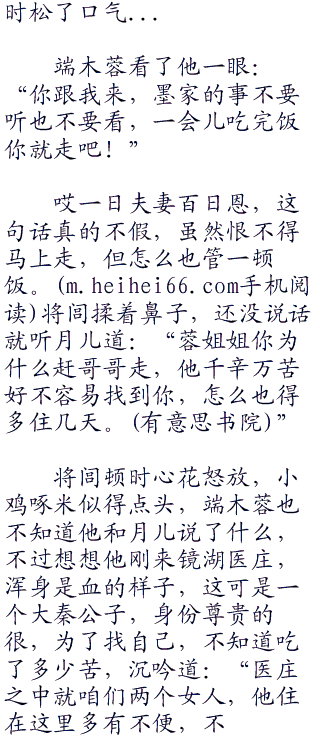 时松了口气...
端木蓉看了他一眼：
“你跟我来，墨家的事不要
听也不要看，一会儿吃完饭
你就走吧！”
哎一日夫妻百日恩，这
句话真的不假，虽然恨不得
马上走，但怎么也管一顿
饭。(m.heihei66.com手机阅
读)将闾揉着鼻子，还没说话
就听月儿道：“蓉姐姐你为
什么赶哥哥走，他千辛万苦
好不容易找到你，怎么也得
多住几天。(有意思书院)”
将闾顿时心花怒放，小
鸡啄米似得点头，端木蓉也
不知道他和月儿说了什么，
不过想想他刚来镜湖医庄，
浑身是血的样子，这可是一
个大秦公子，身份尊贵的
很，为了找自己，不知道吃
了多少苦，沉吟道：“医庄
之中就咱们两个女人，他住
在这里多有不便，不